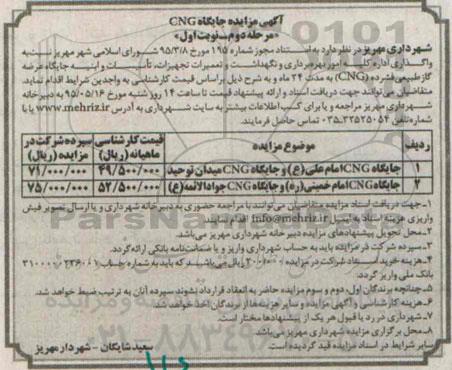 آگهی مزایده جایگاه CNG
«مرحله دوم-نوبت اول»
شهرداری مهریز در نظر دارد به استناد مجوز شماره ۱۹۵ مورخ ۹۵/۳/۸ شورای اسلامی شهر مهریز نسبت به
واگذاری اداره کلیه امور بهره‌برداری و نگهداشت و تعمیرات تجهیزات، تأسیسات و ابنیه جایگاه عرضه
گاز طبیعی فشرده (CNG) به مدت ۲۴ ماه و به شرح ذیل براساس قیمت کارشناسی به واجدین شرایط اقدام نماید.
متقاضیان می‌توانند جهت دریافت اسناد و ارائه پیشنهاد قیمت تا ساعت ۱۴ روز شنبه مورخ ۹۵/۰۵/۱۶ به دبیرخانه
شهرداری مهریز مراجعه و یا برای کسب اطلاعات بیشتر به سایت شهرداری به آدرس www.mehriz.ir و یا با
شماره تلفن ۰۳۵-۳۲۵۲۵۰۵۴ تماس حاصل فرمایند.
ردیف موضوع مزایده قیمت کارشناسی ماهیانه (ریال) سپرده شرکت در مزایده (ریال)
۱ جایگاه CNG امام علی (ع) و جایگاه CNG میدان توحید ۴۹/۵۰۰/۰۰۰ ۷۱/۰۰۰/۰۰۰
۲ جایگاه CNG امام خمینی (ره) و جایگاه CNG جوادالائمه (ع) ۵۲/۵۰۰/۰۰۰ ۷۵/۰۰۰/۰۰۰
۱-جهت دریافت اسناد مزایده متقاضیان می‌توانند با مراجعه حضوری به دبیرخانه شهرداری و یا ارسال تصویر فیش
واریزی هزینه اسناد به ایمیل Info@mehriz.ir اقدام نمایند.
۲-محل تحویل پیشنهادهای مزایده دبیرخانه شهرداری مهریز می‌باشد.
۳-سپرده شرکت در مزایده باید به حساب شهرداری واریز و یا ضمانت‌نامه بانکی ارائه گردد.
۴-هزینه خرید اسناد شرکت در مزایده ۲۰۰/۰۰۰ ریال می‌باشد که باید به شماره حساب
بانک ملی واریز گردد.
۵-چنانچه برندگان اول، دوم و سوم مزایده حاضر به انعقاد قرارداد نشوند سپرده آنان به ترتیب ضبط خواهد شد.
۶-هزینه کارشناسی و آگهی مزایده و سایر هزینه‌ها از برندگان اخذ خواهد شد.
۷-شهرداری در رد یا قبول هر یک از پیشنهادها مختار است.
۸-محل برگزاری مزایده شهرداری مهریز می‌باشد.
سایر شرایط در اسناد مزایده قید گردیده است.
سعید شایگان - شهردار مهریز